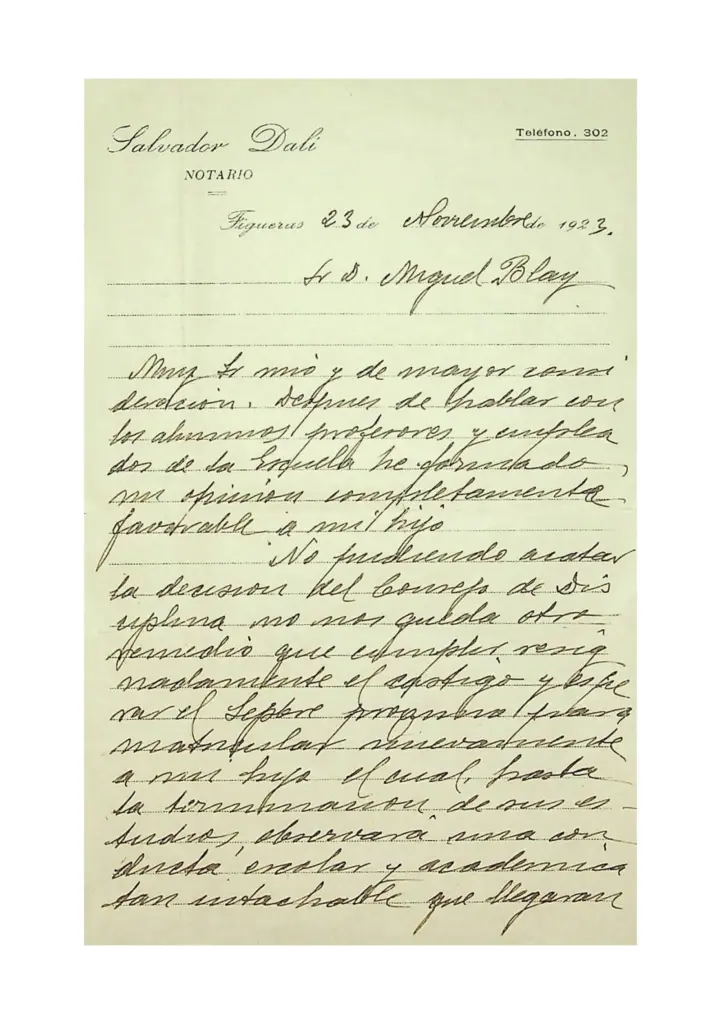 Salvador Dalí
Teléfono. 302
NOTARIO
Figueras 23 de Noviembre de 1923.
Sr D. Miguel Blay
Muy Sr mio y de mayor consi
deracion. Despues de hablar con
los alumnos, profesores y emplea
dos de la Escuela he formado
mi opinion completamente
favorable a mi hijo
No pudiendo acatar
la decision del Consejo de Dis
ciplina no nos queda otro
remedio que cumplir resig
nadamente el castigo y espe
rar el Sepbre proximo para
matricular nuevamente
a mi hijo el cual, hasta
la terminacion de sus es-
tudios, observará una con
ducta escolar y academica
tan intachable que llegaran